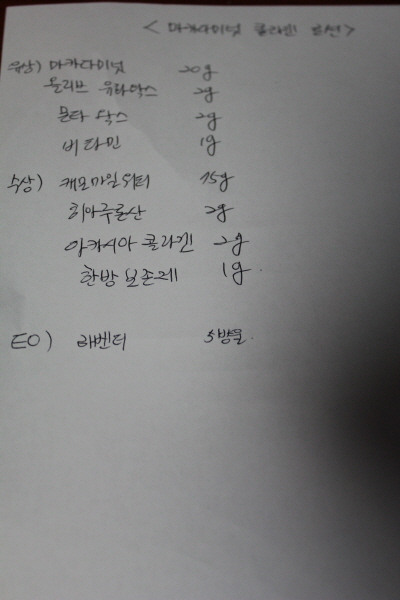 < 마카다미넛 콜라겐 로션 >
유상) 마카다미넛 20g
올리브 유화왁스 2g
몬타왁스 2g
비타민 1g
수상) 캐모마일워터 75g
히아루론산 2g
아카시아 콜라겐 2g
한방보존제 1g.
EO) 라벤더 5방울.